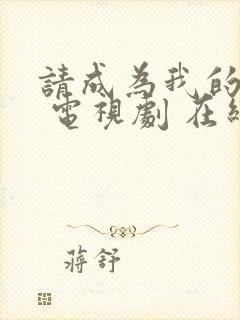 請成為我的
電視劇 在
蔣舒